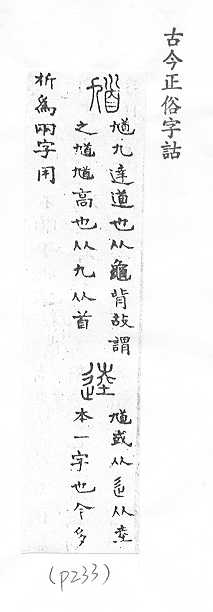 古今正俗字詁
馗
馗九達道也从龜背故謂
之馗馗高也从九从首
逵
馗或从辵从坴
本一字也今多
析爲兩字用
(p233)